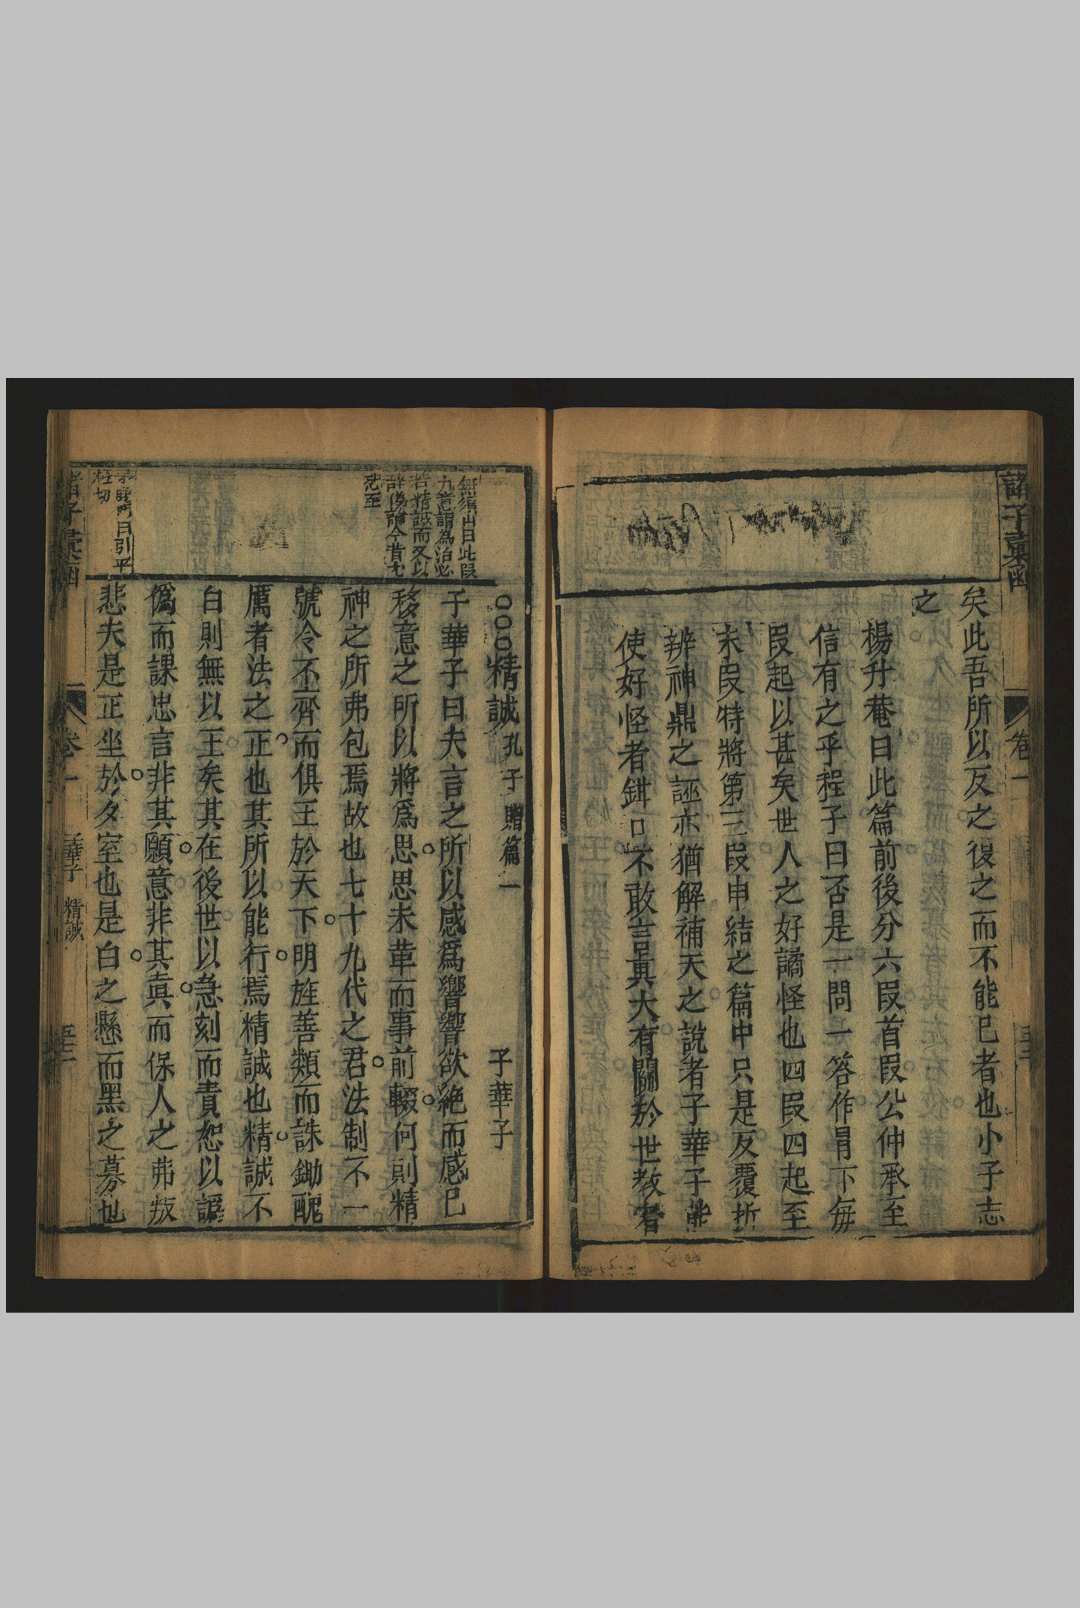 諸子彙函
卷一
矣此吾所以反之復之而不能已者也小子志
之
楊升菴曰此篇前後分六段首段公仲承至
信有之乎程子曰否是一問一答作冒下每
段起以甚矣世人之好譎怪也四段四起至
末段特將第三段申結之篇中只是反覆折
辨神鼎之誣亦猶解補天之說者子華子
使好怪者鉗口不敢言真大有關於世教者
精誠 孔子贈篇一 子華子
子華子曰夫言之所以感爲響響欲絶而感已
移意之所以將爲思思未革而事前輟何則精
神之所弗包焉故也七十九代之君法制不一
號令不齊而俱王於天下明旌善類而誅鋤醜
厲者法之正也其所以能行焉精誠也精誠不
白則無以王矣其在後世以急刻而責恕以謟
僞而課忠言非其願意非其真而保人之弗叛
悲夫是正坐於夕室也是白之懸而黑之募也
山曰此段
九意謂為治必
若精誠而又以
至
諸子彙函
卷一
子華子 精誠